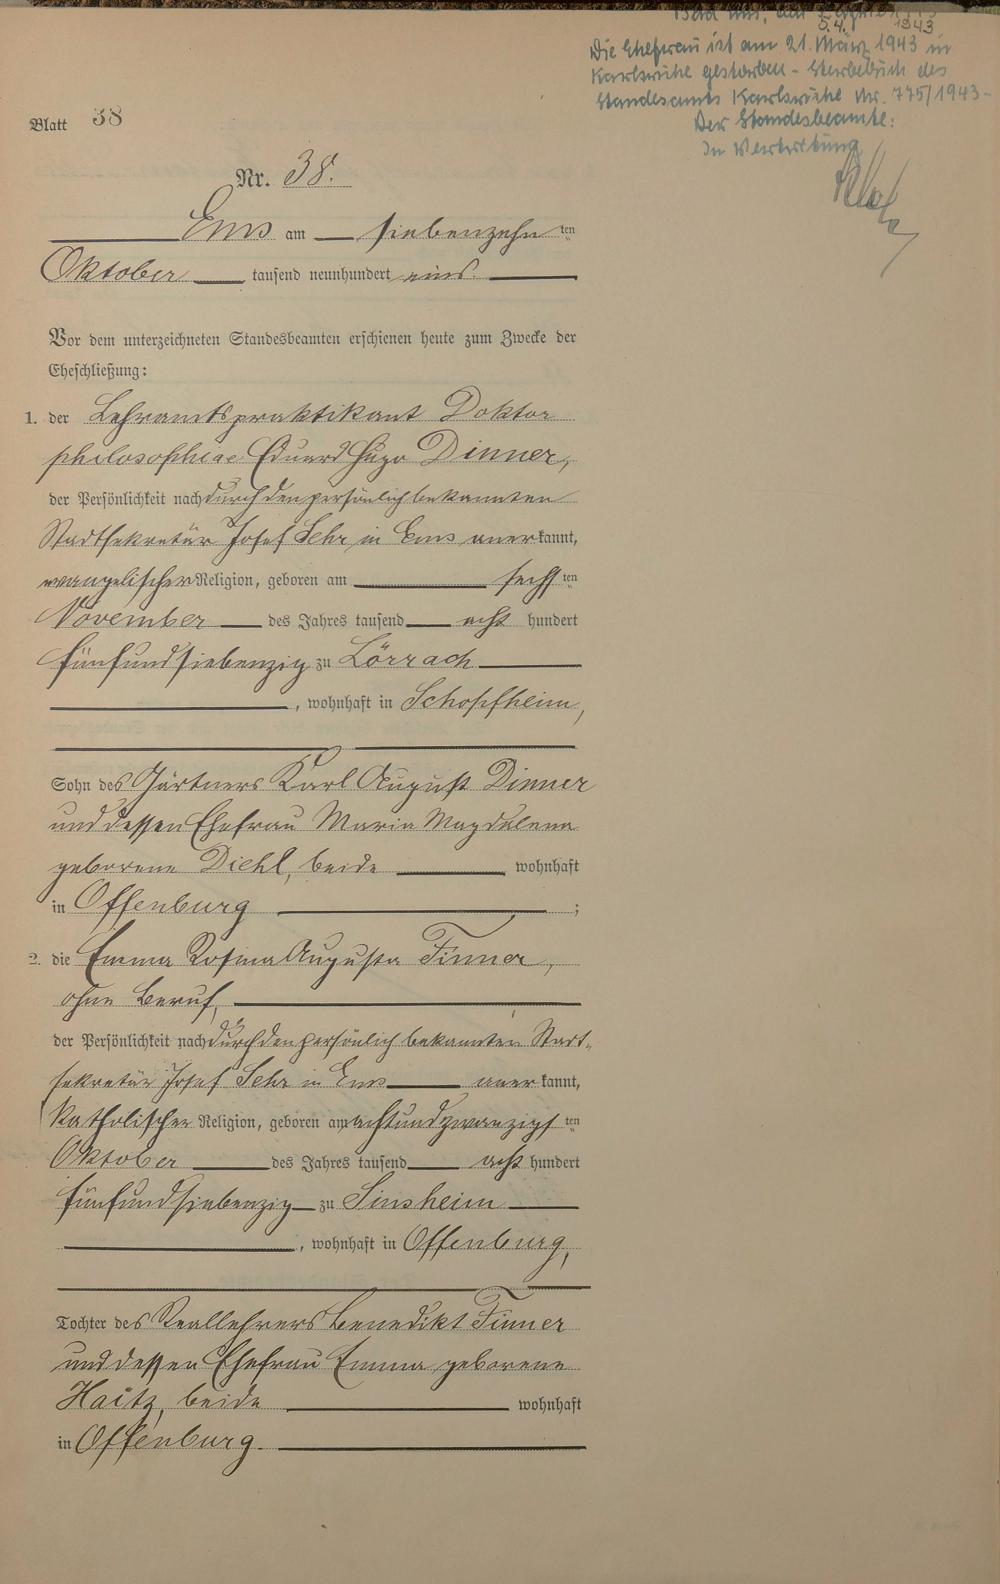 Bad Ems, den
5.4. 1943
Die Ehefrau ist am 21. März 1943 in
Karlsruhe gestorben - Sterbebuch des
Standesamts Karlsruhe Nr. 775/1943 -
Der Standesbeamte:
In Vertretung
Blatt 38
Nr. 38.
Ems am siebenzehnten
Oktober tausend neunhundert eins.
Vor dem unterzeichneten Standesbeamten erschienen heute zum Zwecke der
Eheschließung:
1. der Lehramtspraktikant Doktor
philosophiae Eduard Hugo Dinner,
der Persönlichkeit nach durch den persönlich bekannten
Stadtsekretär Josef Sehr in Ems anerkannt,
evangelischer Religion, geboren am sechsten
November des Jahres tausend acht hundert
fünfundsiebenzig zu Lörrach
, wohnhaft in Schopfheim,
Sohn des Gärtners Karl August Dinner
und dessen Ehefrau Maria Magdalena
geborene Diehl, beide wohnhaft
in Offenburg ;
2. die Emma Rosina Augusta Finner,
ohne Beruf,
der Persönlichkeit nach durch den persönlich bekannten Stadt-
sekretär Josef Sehr in Ems anerkannt,
katholischer Religion, geboren am achtundzwanzigsten
Oktober des Jahres tausend acht hundert
fünfundsiebenzig zu Sinsheim
, wohnhaft in Offenburg,
Tochter des Reallehrers Benedikt Finner
und dessen Ehefrau Emma geborene
Haitz, beide wohnhaft
in Offenburg.